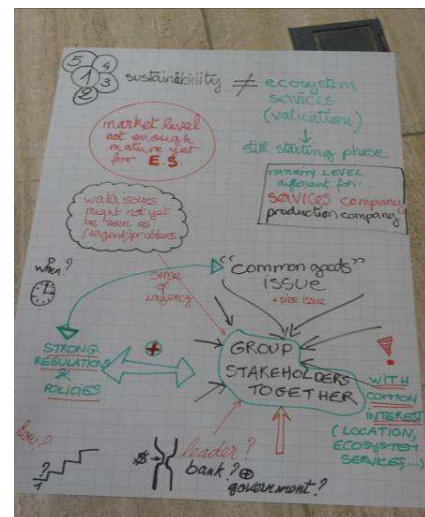 5 4
1 3
2
sustainability ≠ ecosystem
services
(valuation)
still starting phase
market level
not enough
mature yet
for E.S.
LEVEL
different for:
services company
production company
water issues
might not yet
be seen as
(urgent) problems
when?
sense
of
urgency
"common goods"
issue
+ size issue
STRONG
REGULATION
&
POLICIES
+
GROUP
STAKEHOLDERS
TOGETHER
!
WITH
COMMON
INTEREST
(LOCATION,
ECOSYSTEM
SERVICES,...)
how?
?
1
$
leader?
bank? +
government?